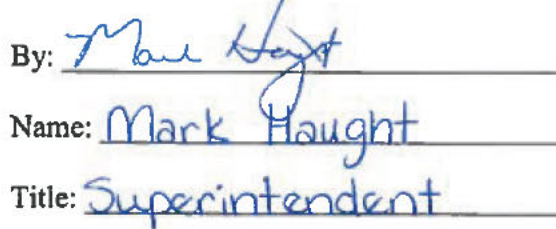 By: Mark Haught
Name: Mark Haught
Title: Superintendent